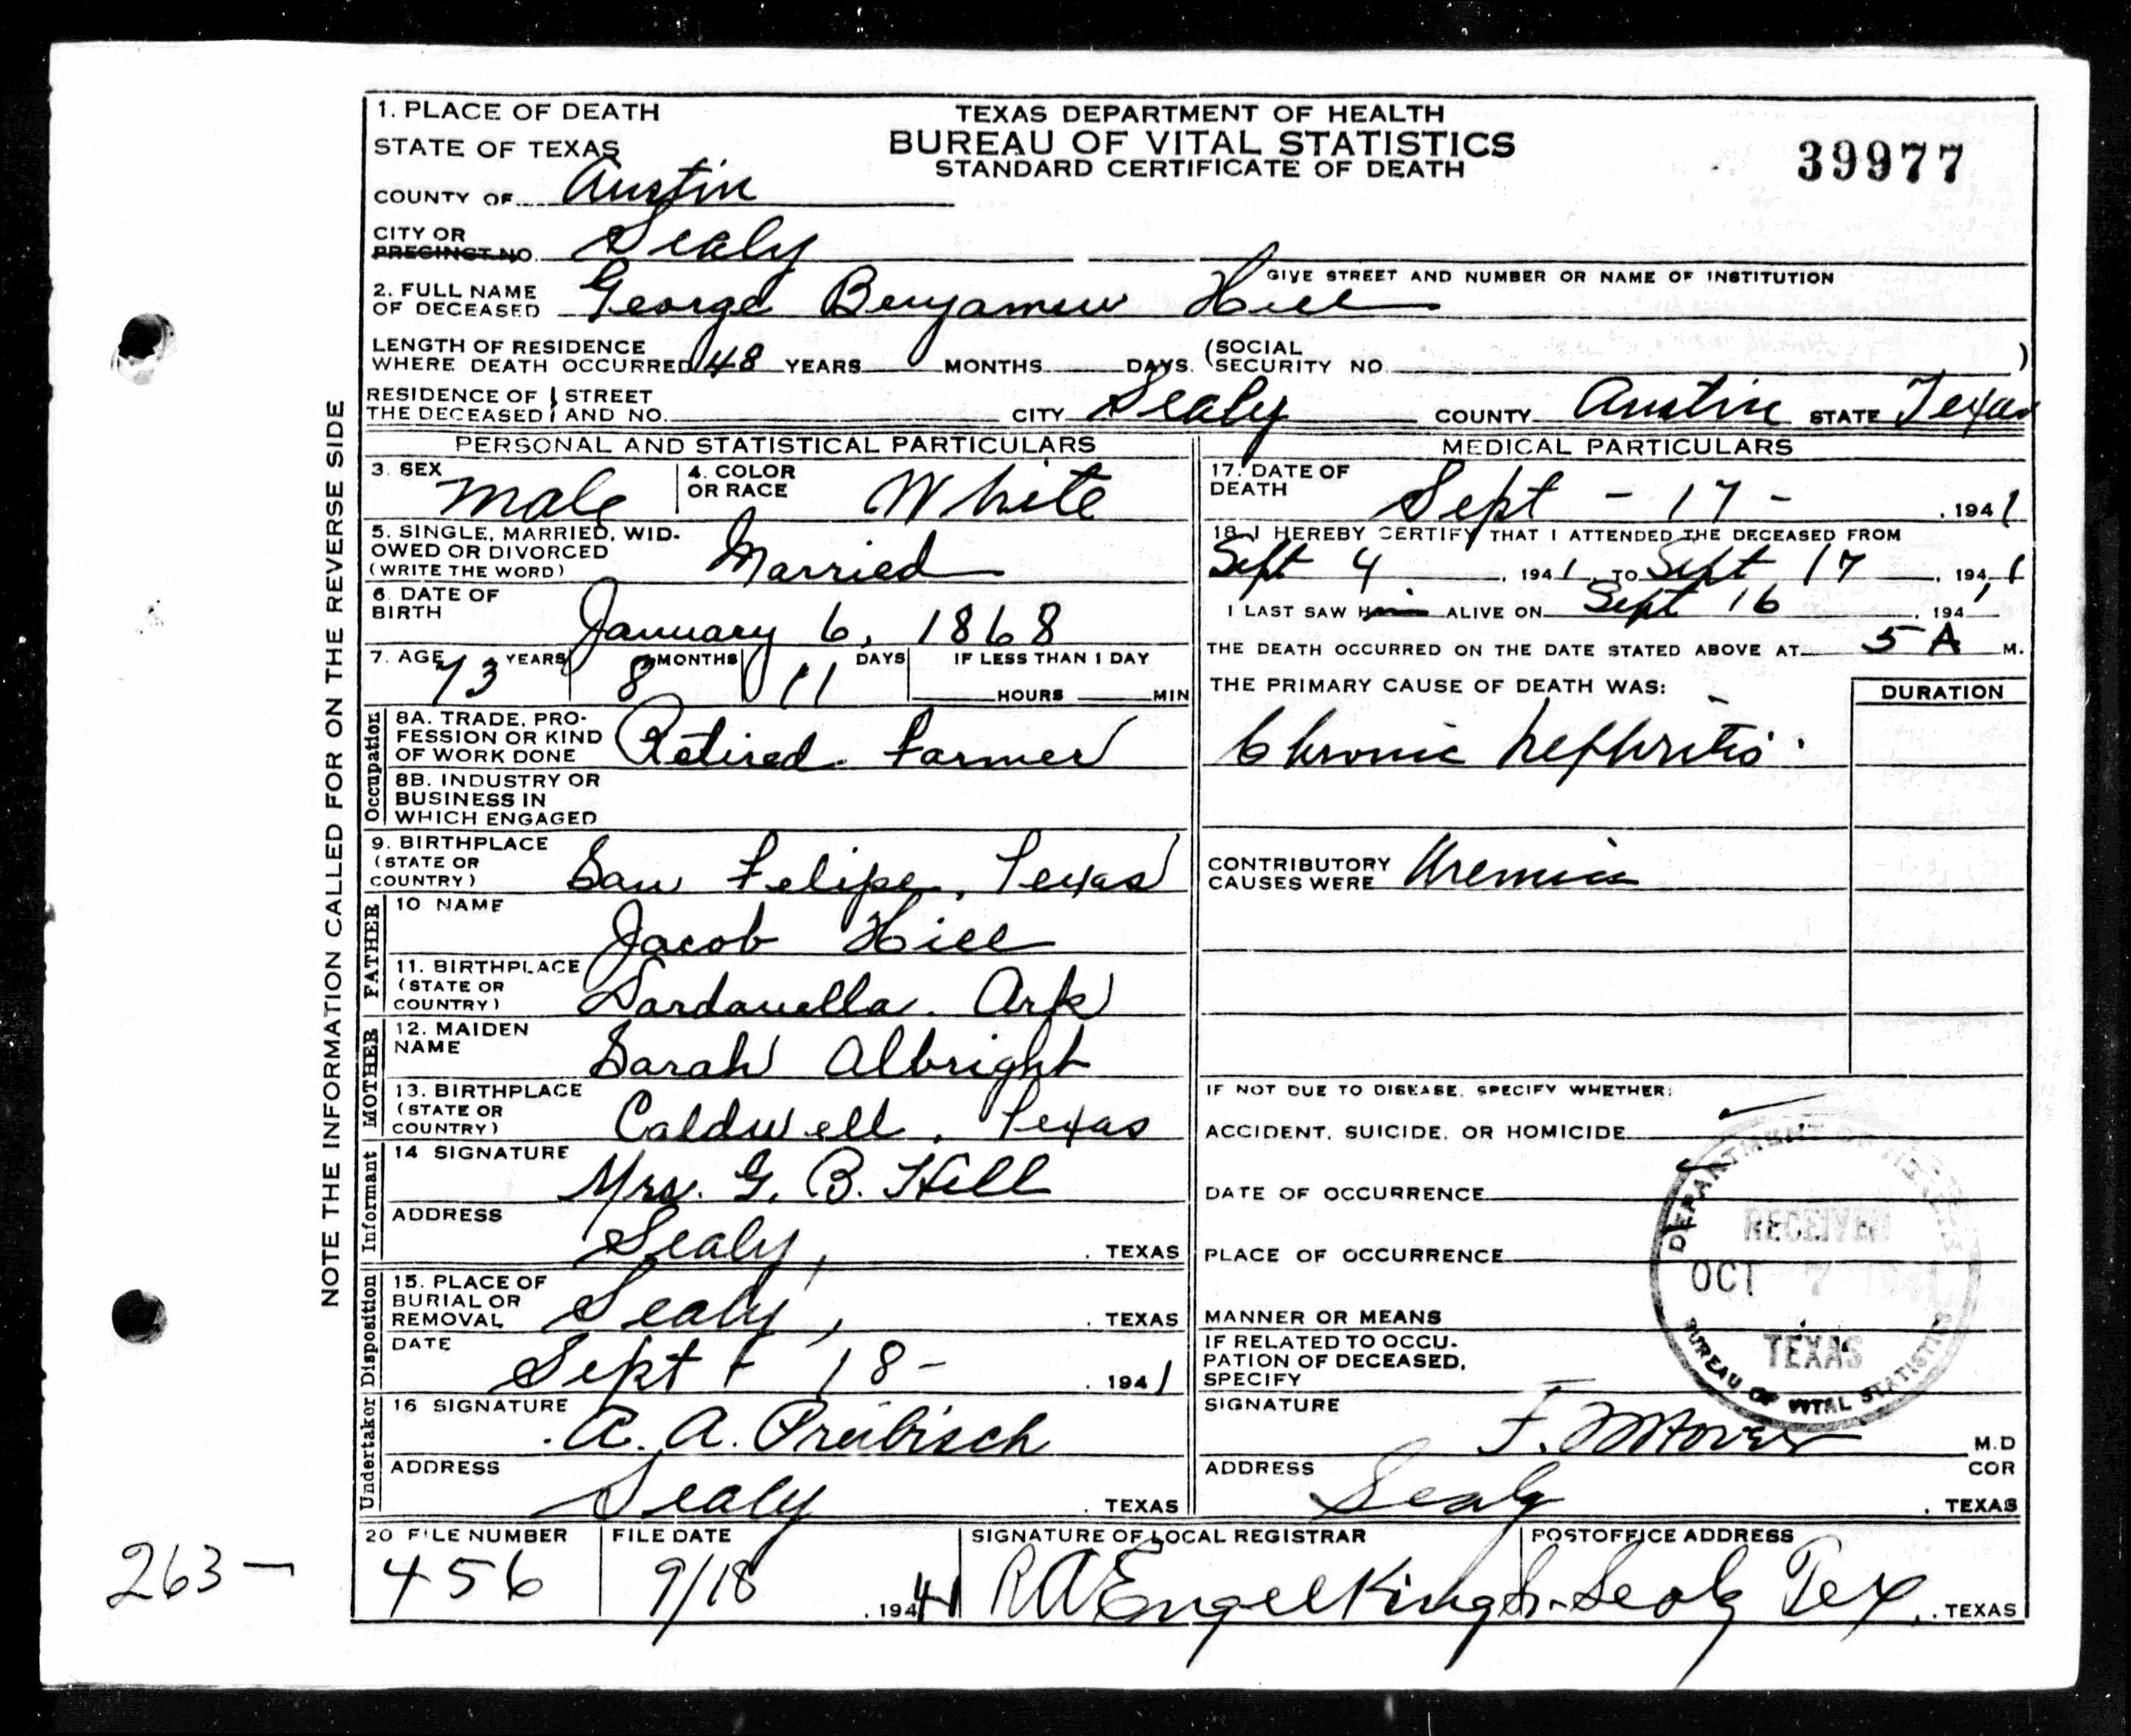 1. PLACE OF DEATH
STATE OF TEXAS
COUNTY OF Austin
CITY OR PRECINCT NO. Sealy
TEXAS DEPARTMENT OF HEALTH
BUREAU OF VITAL STATISTICS
STANDARD CERTIFICATE OF DEATH
39977
GIVE STREET AND NUMBER OR NAME OF INSTITUTION
2. FULL NAME OF DECEASED George Benjamin Hill
LENGTH OF RESIDENCE WHERE DEATH OCCURRED 48 YEARS MONTHS DAYS. (SOCIAL SECURITY NO. )
RESIDENCE OF THE DECEASED STREET AND NO. CITY Sealy COUNTY Austin STATE Texas
NOTE THE INFORMATION CALLED FOR ON THE REVERSE SIDE
PERSONAL AND STATISTICAL PARTICULARS
3. SEX Male
4. COLOR OR RACE White
5. SINGLE, MARRIED, WIDOWED OR DIVORCED (WRITE THE WORD) Married
6. DATE OF BIRTH January 6, 1868
7. AGE 73 YEARS 8 MONTHS 11 DAYS IF LESS THAN 1 DAY HOURS MIN
Occupation
8A. TRADE, PROFESSION OR KIND OF WORK DONE Retired Farmer
8B. INDUSTRY OR BUSINESS IN WHICH ENGAGED
9. BIRTHPLACE (STATE OR COUNTRY) San Felipe, Texas
FATHER
10 NAME Jacob Hill
11. BIRTHPLACE (STATE OR COUNTRY) Dardanella. Ark
MOTHER
12. MAIDEN NAME Sarah Albright
13. BIRTHPLACE (STATE OR COUNTRY) Caldwell, Texas
Informant
14 SIGNATURE Mrs. G. B. Hill
ADDRESS Sealy, TEXAS
Disposition
15. PLACE OF BURIAL OR REMOVAL Sealy, TEXAS
DATE Sept 18- 1941
Undertaker
16 SIGNATURE A. A. Preibisch
ADDRESS Sealy TEXAS
MEDICAL PARTICULARS
17. DATE OF DEATH Sept - 17 - 1941
18 I HEREBY CERTIFY THAT I ATTENDED THE DECEASED FROM
Sept 4 1941 TO Sept 17 1941
I LAST SAW Him ALIVE ON Sept 16 1941
THE DEATH OCCURRED ON THE DATE STATED ABOVE AT 5 A M.
THE PRIMARY CAUSE OF DEATH WAS: DURATION
Chronic Nephritis
CONTRIBUTORY CAUSES WERE Uremia
IF NOT DUE TO DISEASE, SPECIFY WHETHER:
ACCIDENT, SUICIDE, OR HOMICIDE
DATE OF OCCURRENCE
PLACE OF OCCURRENCE
MANNER OR MEANS
IF RELATED TO OCCUPATION OF DECEASED, SPECIFY
DEPARTMENT OF HEALTH
RECEIVED
OCT 7 1941
TEXAS
BUREAU OF VITAL STATISTICS
SIGNATURE F. M.D
COR
ADDRESS Sealy TEXAS
20 FILE NUMBER 456
FILE DATE 9/18 1941
SIGNATURE OF LOCAL REGISTRAR R A Engelking
POSTOFFICE ADDRESS Sealy Tex. TEXAS
263-